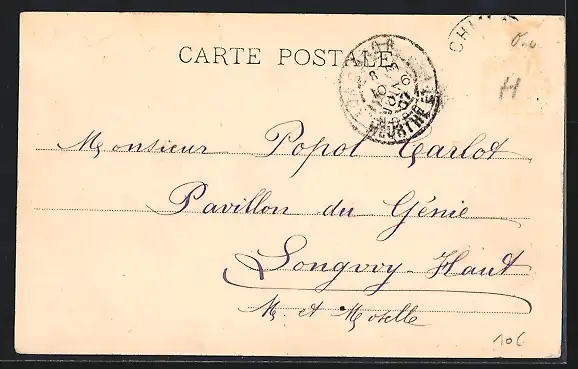 CARTE POSTALE
CHI
MEURTHE ET
H
Monsieur Popol Carlot
Pavillon du Génie
Longwy-Haut
M. et Moselle
106